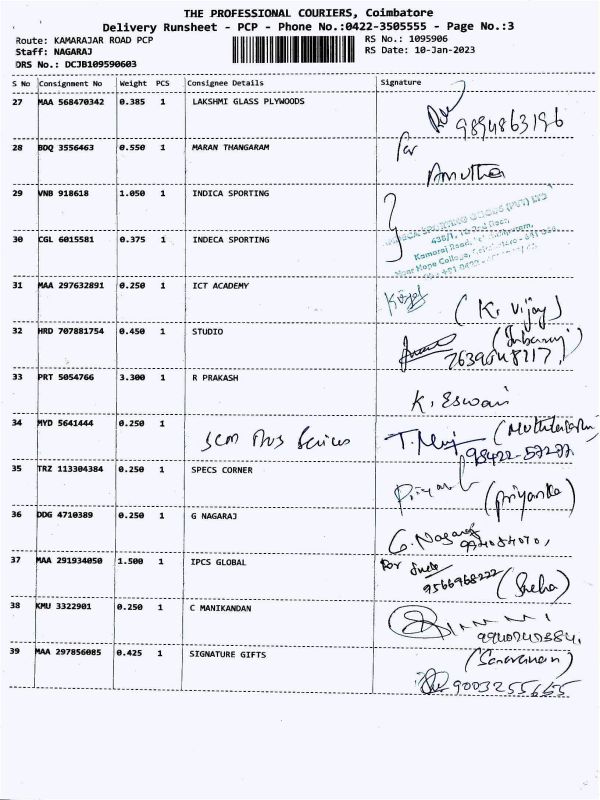 THE PROFESSIONAL COURIERS, Coimbatore
Delivery Runsheet - PCP - Phone No.:0422-3505555 - Page No.:3
Route: KAMARAJAR ROAD PCP RS No.: 1095906
Staff: NAGARAJ RS Date: 10-Jan-2023
DRS No.: DCJB109590603
S No Consignment No Weight PCS Consignee Details Signature
27 MAA 568470342 0.385 1 LAKSHMI GLASS PLYWOODS
9894863196
28 BDQ 3556463 0.550 1 MARAN THANGARAM for
Amutha
29 VNB 918618 1.050 1 INDICA SPORTING
30 CGL 6015581 0.375 1 INDECA SPORTING
Kamaraj Road,
Near Hope College,
31 MAA 297632891 0.250 1 ICT ACADEMY
(K. Vijay)
32 HRD 707881754 0.450 1 STUDIO
33 PRT 5054766 3.300 1 R PRAKASH
K. Eswari
34 MYD 5641444 0.250 1
35 TRZ 113304384 0.250 1 SPECS CORNER
(Priyanka)
36 DDG 4710389 0.250 1 G NAGARAJ
G. Nagaraj
37 MAA 291934050 1.500 1 IPCS GLOBAL For
9566968222 (Sneha)
38 KMU 3322901 0.250 1 C MANIKANDAN
39 MAA 297856085 0.425 1 SIGNATURE GIFTS (Saravanan)
9003255655